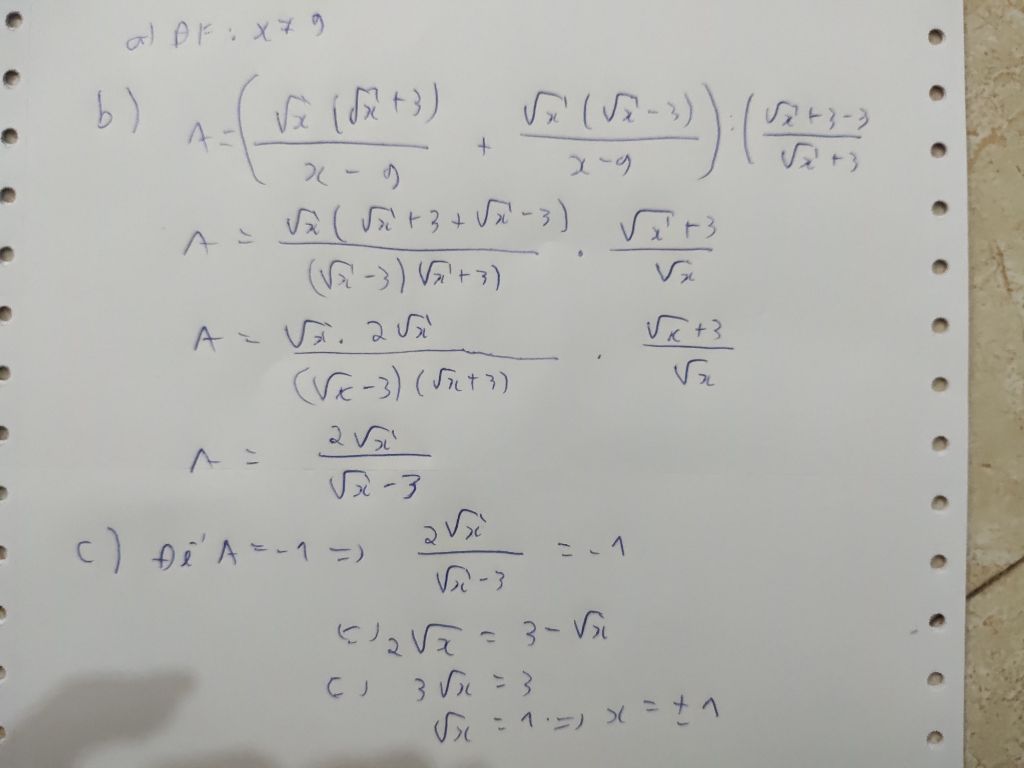 a) ĐK : x ≠ 9
b) A = ( √x (√x + 3) / x - 9 + √x (√x - 3) / x - 9 ) : ( √x + 3 - 3 / √x + 3
A = √x ( √x + 3 + √x - 3) / (√x - 3) (√x + 3) . √x + 3 / √x
A = √x . 2 √x / (√x - 3) (√x + 3) . √x + 3 / √x
A = 2 √x / √x - 3
c) Để A = -1 => 2 √x / √x - 3 = -1
(=) 2 √x = 3 - √x
(=) 3 √x = 3
√x = 1 => x = ± 1